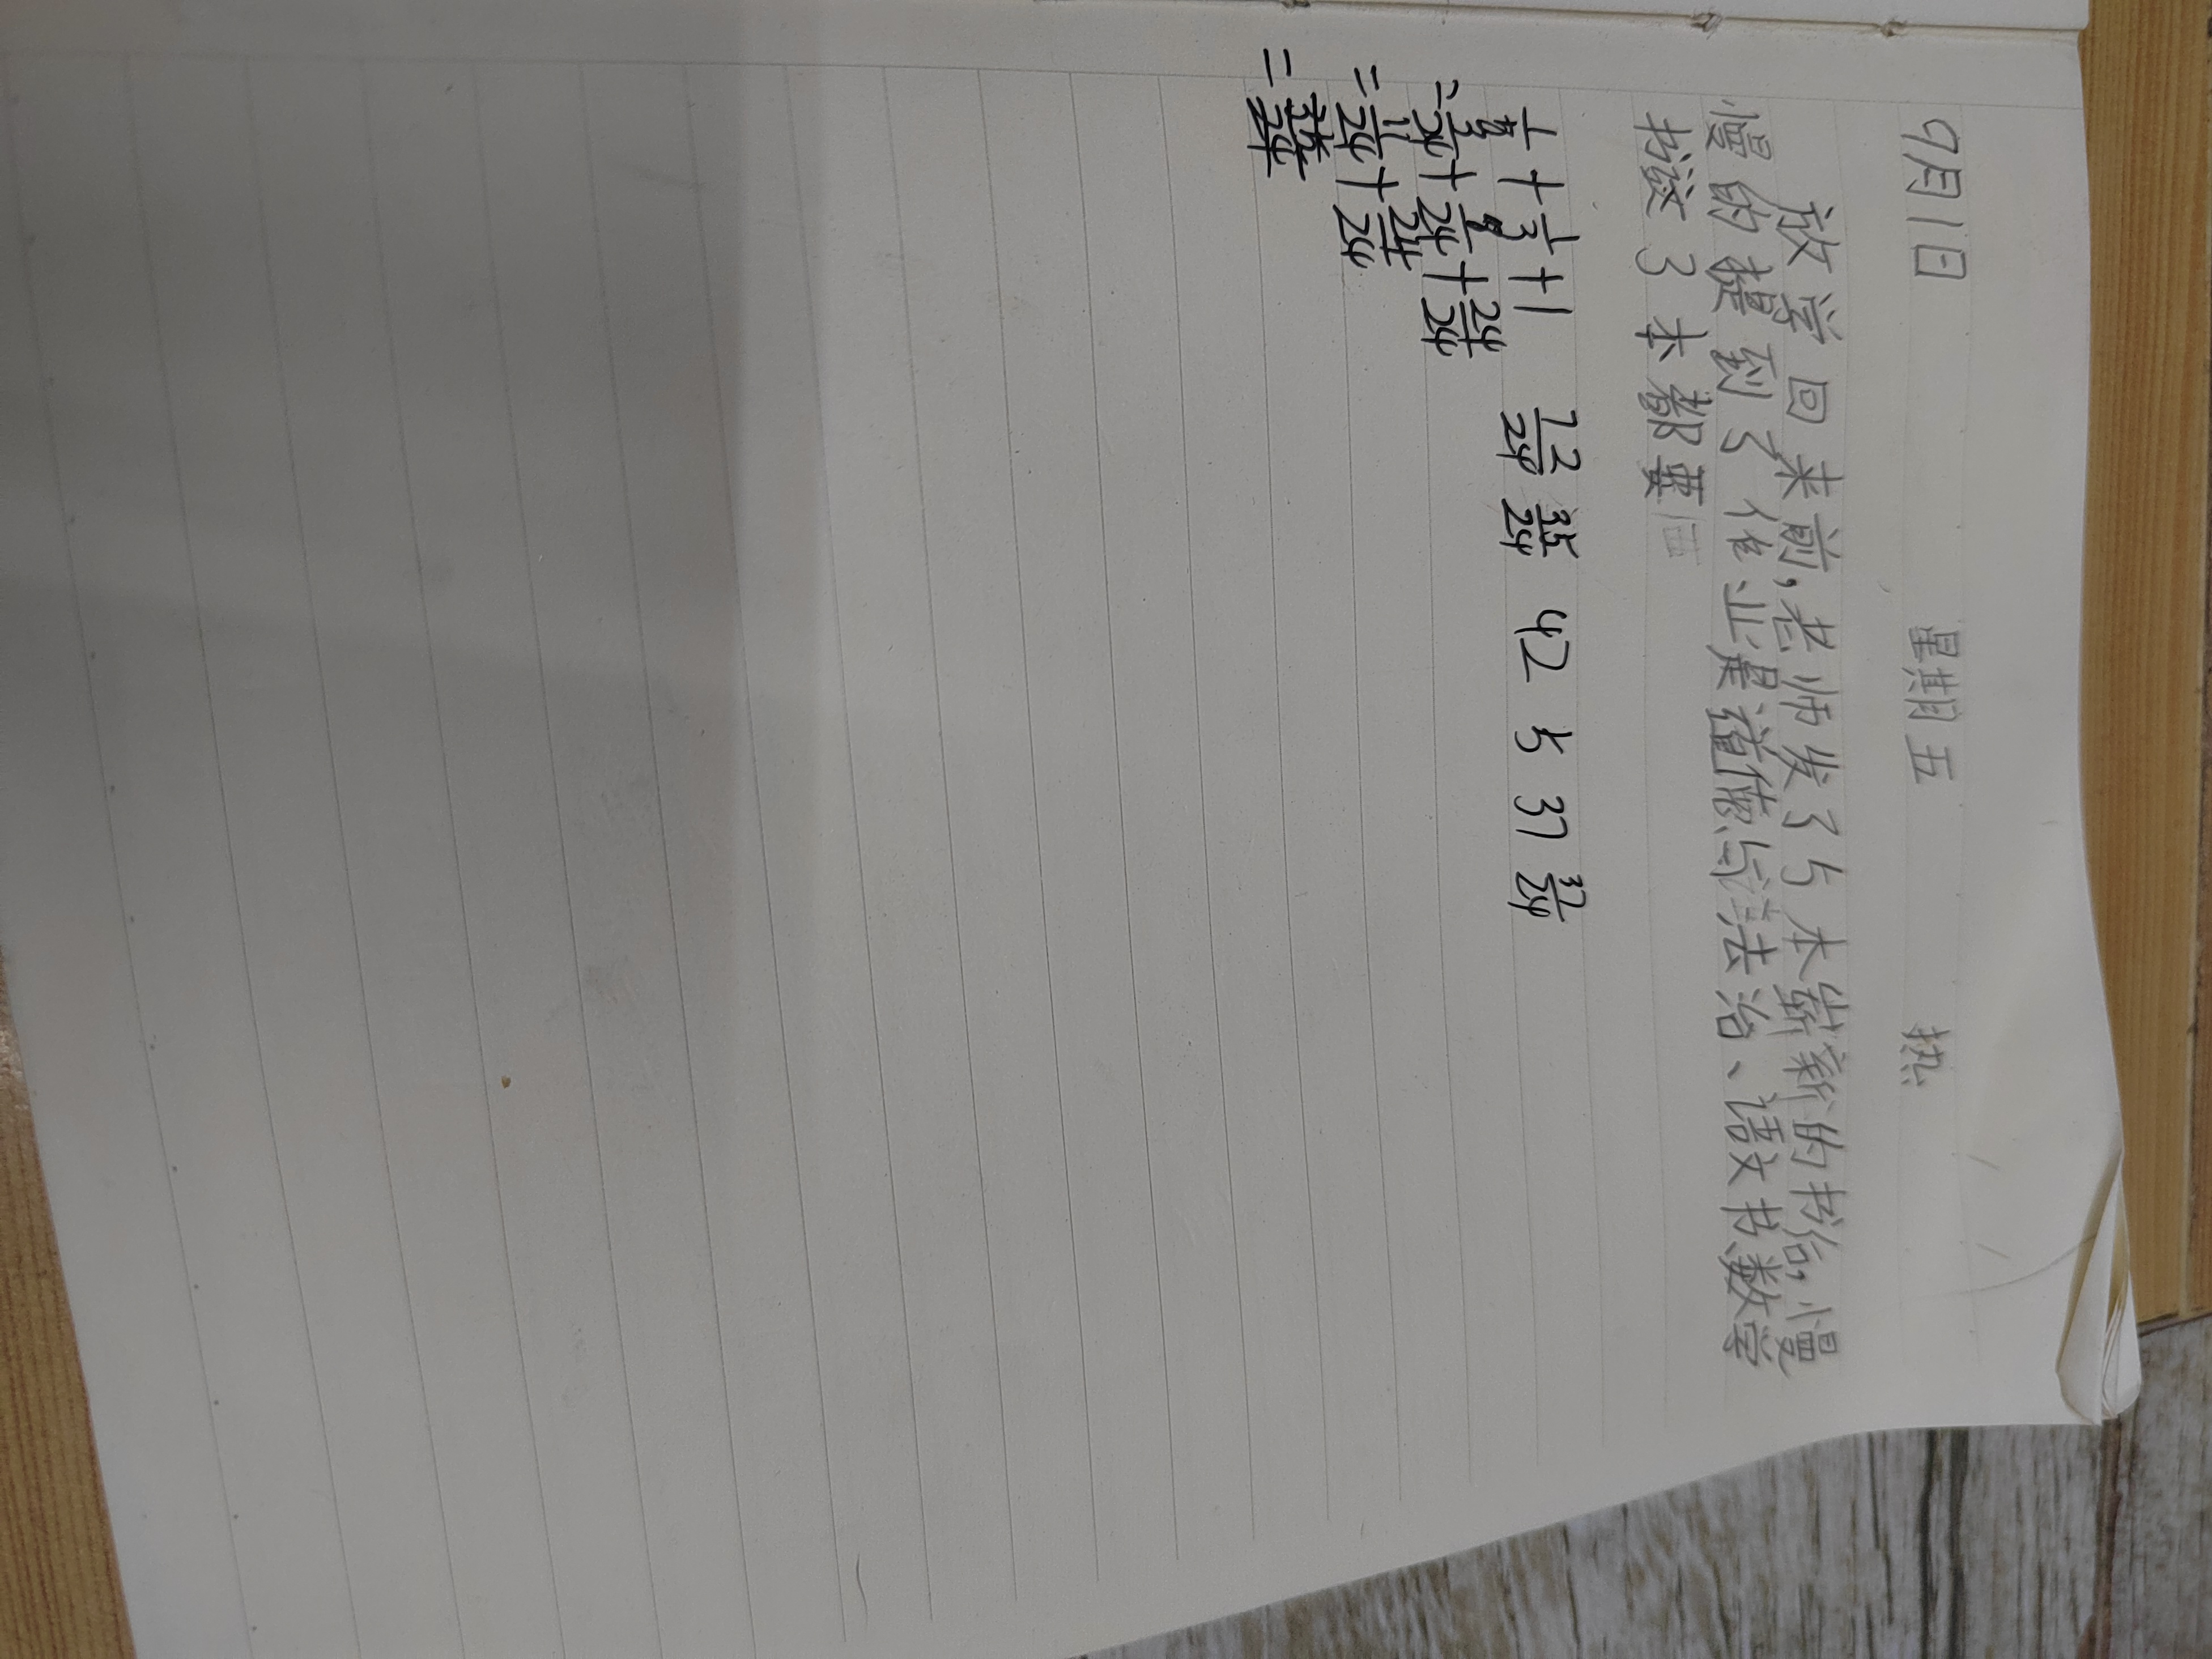 9月1日 星期五 热
放学回来前,老师发了5本崭新的书给,慢
慢的提到了作业是道德与法治、语文书数学
书这3本都要
1/8 + 1/3 + 1 72/24 35/24 42 5 37 37/24
= 3/24 + 8/24 + 24/24
= 11/24 + 24/24
= 35/24